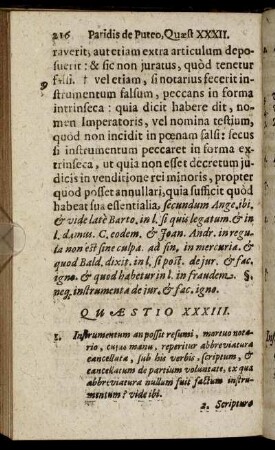 216 Paridis de Puteo, Quæst XXXII.
raverit; aut etiam extra articulum depo-
suerit: & sic non juratus, quòd tenetur
falsi. † vel etiam, si notarius fecerit in-
9
strumentum falsum, peccans in forma
intrinseca: quia dicit habere dit, no-
men Imperatoris, vel nomina testium,
quod non incidit in pœnam falsi: secus
si instrumentum peccaret in forma ex-
trinseca, ut quia non esset decretum ju-
dicis in venditione rei minoris, propter
quod posset annullari, quia sufficit quòd
habeat sua essentialia, secundum Ange, ibi,
& vide latè Barto. in l. si quis legatum. & in
l. damus. C. eodem. & Joan. Andr. in regu-
la non est sine culpa. ad fin, in mercuria. &
quod Bald. dixit. in l. si post. de jur. & fac.
igno. & quod habetur in l. in fraudem. §.
neq, instrumenta de jur. & fac. igno.
QUÆSTIO XXXIII.
1. Instrumentum an possit resumi, mortuo nota-
rio, cujus manu, reperitur abbreviatura
cancellata, sub his verbis, scriptum, &
cancellatum de partium voluntate, ex qua
abbreviatura nullum fuit factum instru-
mentum? vide ibi.
2. Scriptura